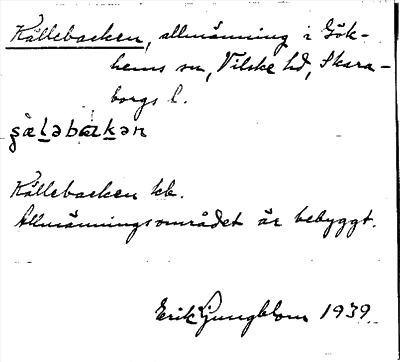 Källebacken, allmänning i Gök-
hems sn, Vilske hd, Skara-
borgs l.
ʂæl̲əbak̲ən
Källebacken kk.
Allmänningsområdet är bebyggt.
Erik Ljungblom 1939